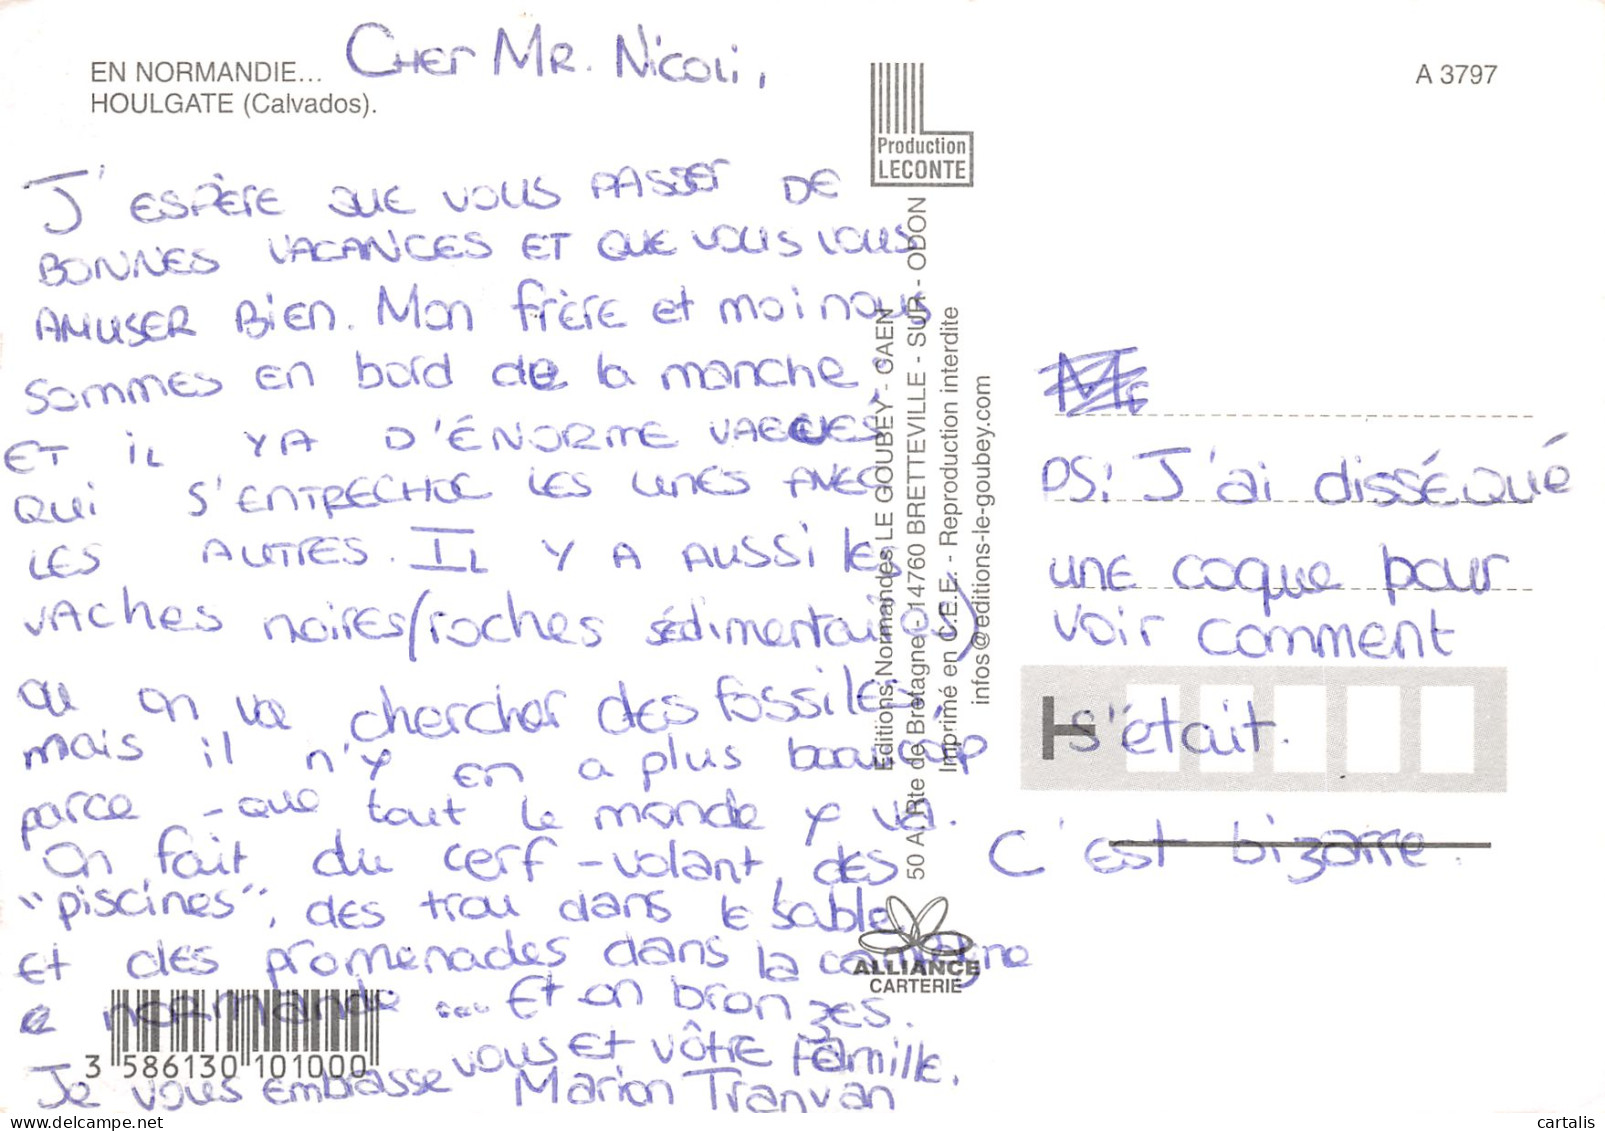 EN NORMANDIE...
HOULGATE (Calvados).
CHER MR. Nicoli,
A 3797
Production
LECONTE
J'ESPÈRE QUE VOUS PASSER DE
BONNES VACANCES ET QUE VOUS VOUS
AMUSER BIEN. Mon frère et moi nous
sommes en bord de la manche,
ET IL Y A D'ÉNORME VAGUES
QUI S'ENTRECHOC LES UNES AVEC
LES AUTRES. IL Y A AUSSI les
VAches noires (roches sédimentaires)
ou on va chercher des fossiles,
mais il n'y en a plus beaucoup
parce-que tout le monde y va.
On fait du cerf-volant, des
"piscines", des trou dans le sable,
et des promenades dans la campagne
normande... Et on bronzes.
Je vous embrasse vous et vôtre famille.
Marion Tranvan
Editions Normandes LE GOUBEY - CAEN
50 A, Rte de Bretagne - 14760 BRETTEVILLE - SUR - ODON
Imprimé en C.E.E. - Reproduction interdite
infos@editions-le-goubey.com
ALLIANCE
CARTERIE
3 586130 101000
Mr
PS: J'ai disséqué
une coque pour
voir comment
s'était.
C'est bizarre.
cartalis